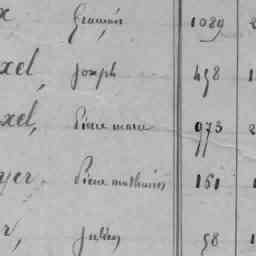 x François 1089 2
xel, Joseph 458 1
xel, Pierre marie 973 2
yer Pierre mathurin 161 1
r, Julien 58 1